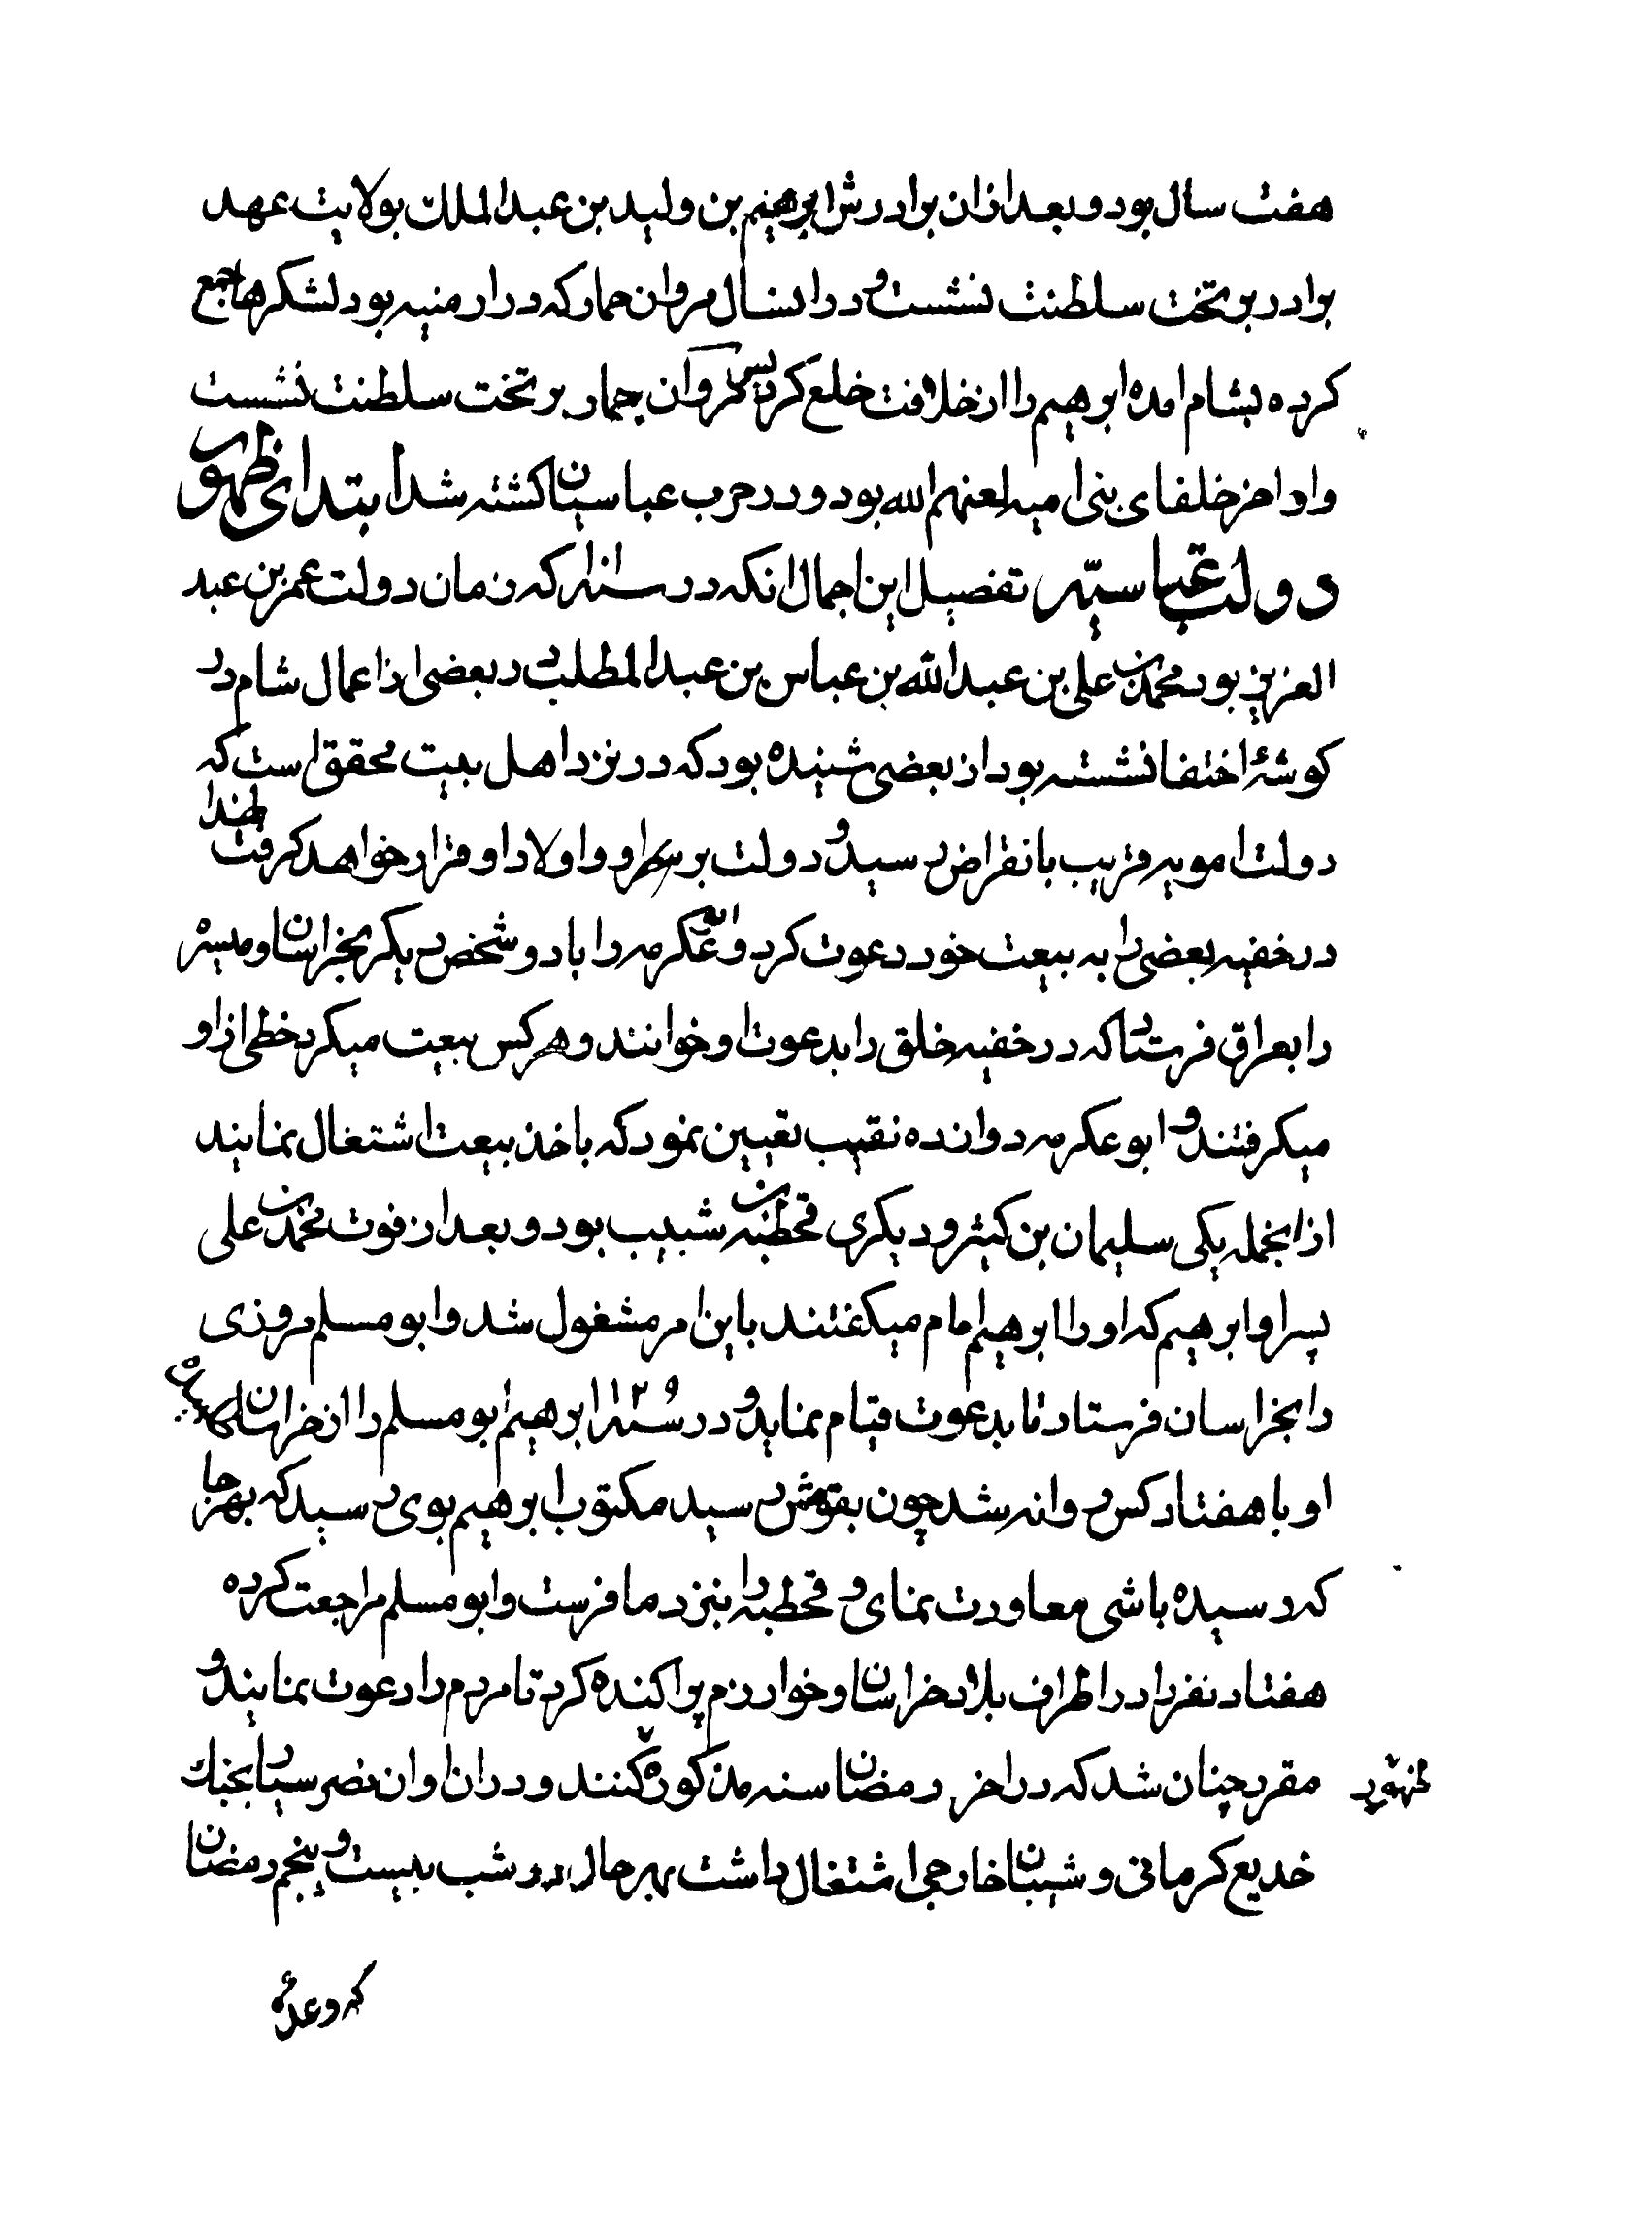 هفت سال بود و بعد ازان برادرش ابرهیم بن ولید بن عبد الملك بولایت عهد
برادر بر تخت سلطنت نشست و در انسال مروان حمار که در ارمنیه بود لشکرها جمع
کرده بشام امده ابرهیم را از خلافت خلع کرد پس مروان حمار بر تخت سلطنت نشست
واو اخر خلفای بنی امیه لعنهم الله بود و در حرب عباسیان کشته شد ابتدای ظهور
دولت عباسیه تفصیل این اجمال انکه در سنه که زمان دولت عمر بن عبد
العزیز بود محمد بن علی بن عبد الله بن عباس بن عبد المطلب در بعضی از اعمال شام در
کوشهٔ اختفا نشسته بود از بعضی شنیده بود که در نزد اهل بیت محقق است که
دولت امویه قریب بانقراض رسید و دولت بر او و اولاد او قرار خواهد کرفت لهذا
در خفیه بعضی را به بیعت خود دعوت کرد و ابو عکرمه را با دو شخص دیکر بخراسان و میسره
را بعراق فرستاد که در خفیه خلق را بدعوت او خوانند و هر کس بیعت میکرد خطی از او
میکرفتند و ابو عکرمه دوازده نقیب تعیین نمود که باخذ بیعت اشتغال نمایند
از انجمله یکی سلیمان بن کثیر و دیکری قحطبة بن شبیب بود و بعد از فوت محمد بن علی
پسر او ابرهیم که او را ابرهیم امام میکفتند باین امر مشغول شد و ابو مسلم مروزی
را بخراسان فرستاد تا بدعوت قیام نماید و در سنه ۱۲۹ ابرهیم ابو مسلم را از خراسان
او با هفتاد کس روانه شد چون بقومش رسید مکتوب ابرهیم بوی رسید که بهر جا
که رسیده باشی معاودت نمای و قحطبه را بنزد ما فرست و ابو مسلم مراجعت کرده
هفتاد نفر را در اطراف بلاد خراسان و خوارزم پراکنده کرد تا مردم را دعوت نمایند و
مقرر چنان شد که در اخر رمضان سنه مذکوره کنند و در ان اوان نصر سیار بجنك
خدیع کرمانی و شیبان خارجی اشتغال داشت بهر حال در شب بیست و پنجم رمضان
که وعدهٔ